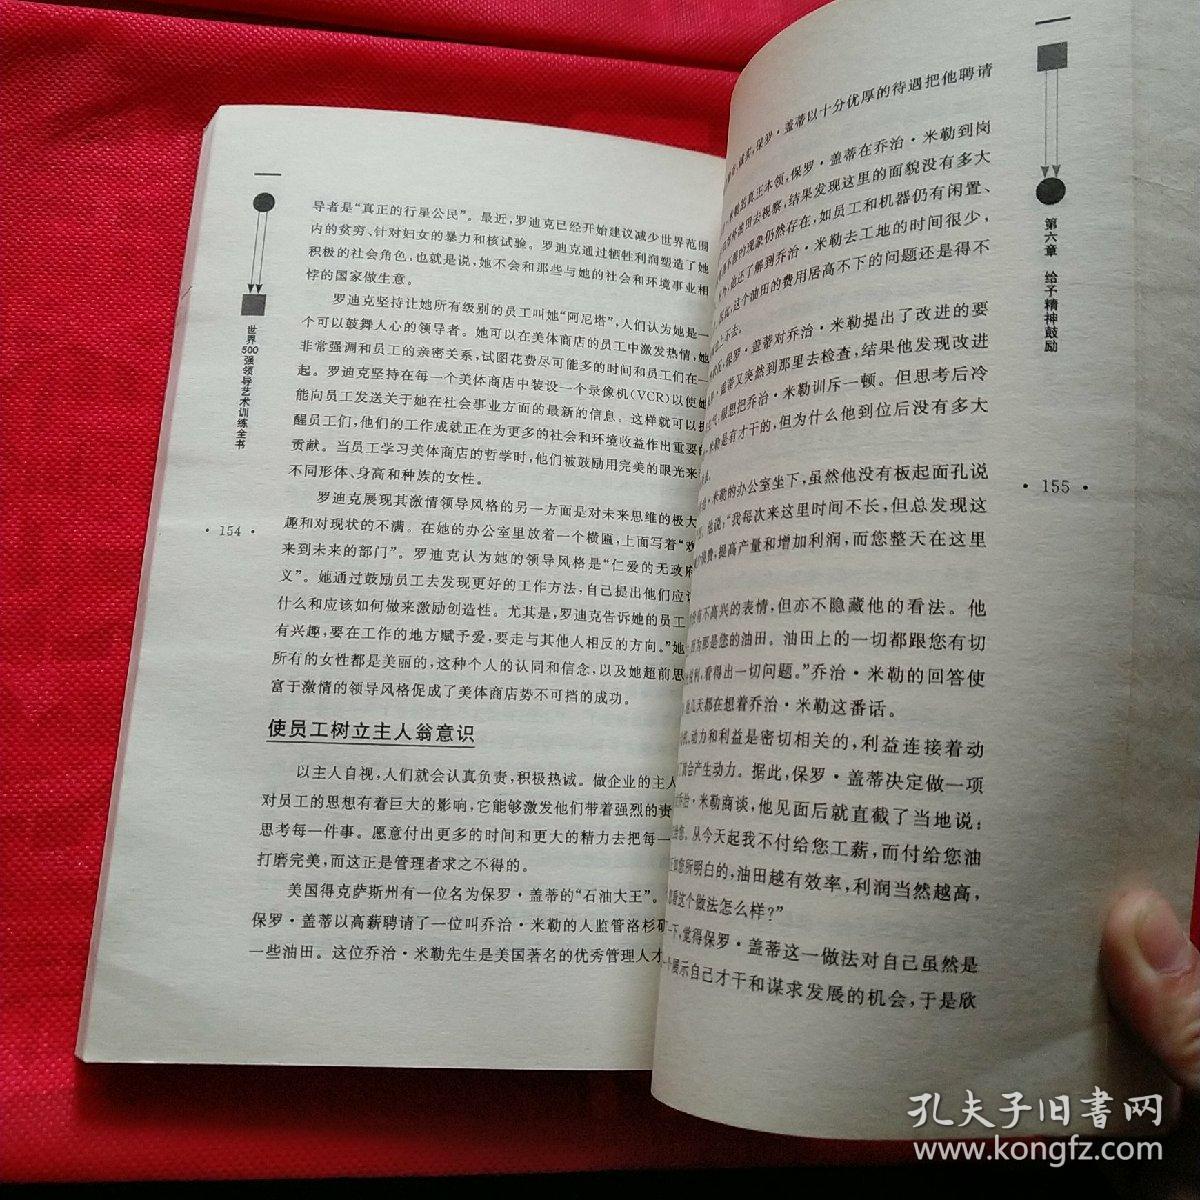 世界500强领导艺术训练全书
· 154 ·
导者是“真正的行星公民”。最近，罗迪克已经开始建议减少世界范围
内的贫穷、针对妇女的暴力和核试验。罗迪克通过牺牲利润塑造了她
积极的社会角色，也就是说，她不会和那些与她的社会和环境事业相
悖的国家做生意。
罗迪克坚持让她所有级别的员工叫她“阿尼塔”，人们认为她是一
个可以鼓舞人心的领导者。她可以在美体商店的员工中激发热情，她
非常强调和员工的亲密关系，试图花费尽可能多的时间和员工们在一
起。罗迪克坚持在每一个美体商店中装设一个录像机(VCR)以使她
能向员工发送关于她在社会事业方面的最新的信息。这样就可以
醒员工们，他们的工作成就正在为更多的社会和环境收益作出重要
贡献。当员工学习美体商店的哲学时，他们被鼓励用完美的眼光来
不同形体、身高和种族的女性。
罗迪克展现其激情领导风格的另一方面是对未来思维的极大
趣和对现状的不满。在她的办公室里放着一个横匾，上面写着“
来到未来的部门”。罗迪克认为她的领导风格是“仁爱的无政府
义”。她通过鼓励员工去发现更好的工作方法，自己提出他们应
什么和应该如何做来激励创造性。尤其是，罗迪克告诉她的员工
有兴趣，要在工作的地方赋予爱，要走与其他人相反的方向。”她
所有的女性都是美丽的，这种个人的认同和信念，以及她超前思
富于激情的领导风格促成了美体商店势不可挡的成功。
使员工树立主人翁意识
以主人自视，人们就会认真负责，积极热诚。做企业的主人
对员工的思想有着巨大的影响，它能够激发他们带着强烈的责
思考每一件事。愿意付出更多的时间和更大的精力去把每一
打磨完美，而这正是管理者求之不得的。
美国得克萨斯州有一位名为保罗·盖蒂的“石油大王”。
保罗·盖蒂以高薪聘请了一位叫乔治·米勒的人监管洛杉矶
一些油田。这位乔治·米勒先生是美国著名的优秀管理人才
保罗·盖蒂以十分优厚的待遇把他聘请
保罗·盖蒂在乔治·米勒到岗
去视察，结果发现这里的面貌没有多大
的现象仍然存在，如员工和机器仍有闲置、
他还了解到乔治·米勒去工地的时间很少，
这个油田的费用居高不下的问题还是得不
保罗·盖蒂对乔治·米勒提出了改进的要
盖蒂又突然到那里去检查，结果他发现改进
很想把乔治·米勒训斥一顿。但思考后冷
米勒是有才干的，但为什么他到位后没有多大
米勒的办公室坐下，虽然他没有板起面孔说
他说：“我每次来这里时间不长，但总发现这
提高产量和增加利润，而您整天在这里
有不高兴的表情，但亦不隐藏他的看法。他
因为那是您的油田。油田上的一切都跟您有切
看得出一切问题。”乔治·米勒的回答使
几天都在想着乔治·米勒这番话。
动力和利益是密切相关的，利益连接着动
会产生动力。据此，保罗·盖蒂决定做一项
乔治·米勒商谈，他见面后就直截了当地说：
从今天起我不付给您工薪，而付给您油
如您所明白的，油田越有效率，利润当然越高，
这个做法怎么样？”
一下，觉得保罗·盖蒂这一做法对自己虽然是
展示自己才干和谋求发展的机会，于是欣
第六章 给予精神鼓励
· 155 ·
孔夫子旧書网
www.kongfz.com